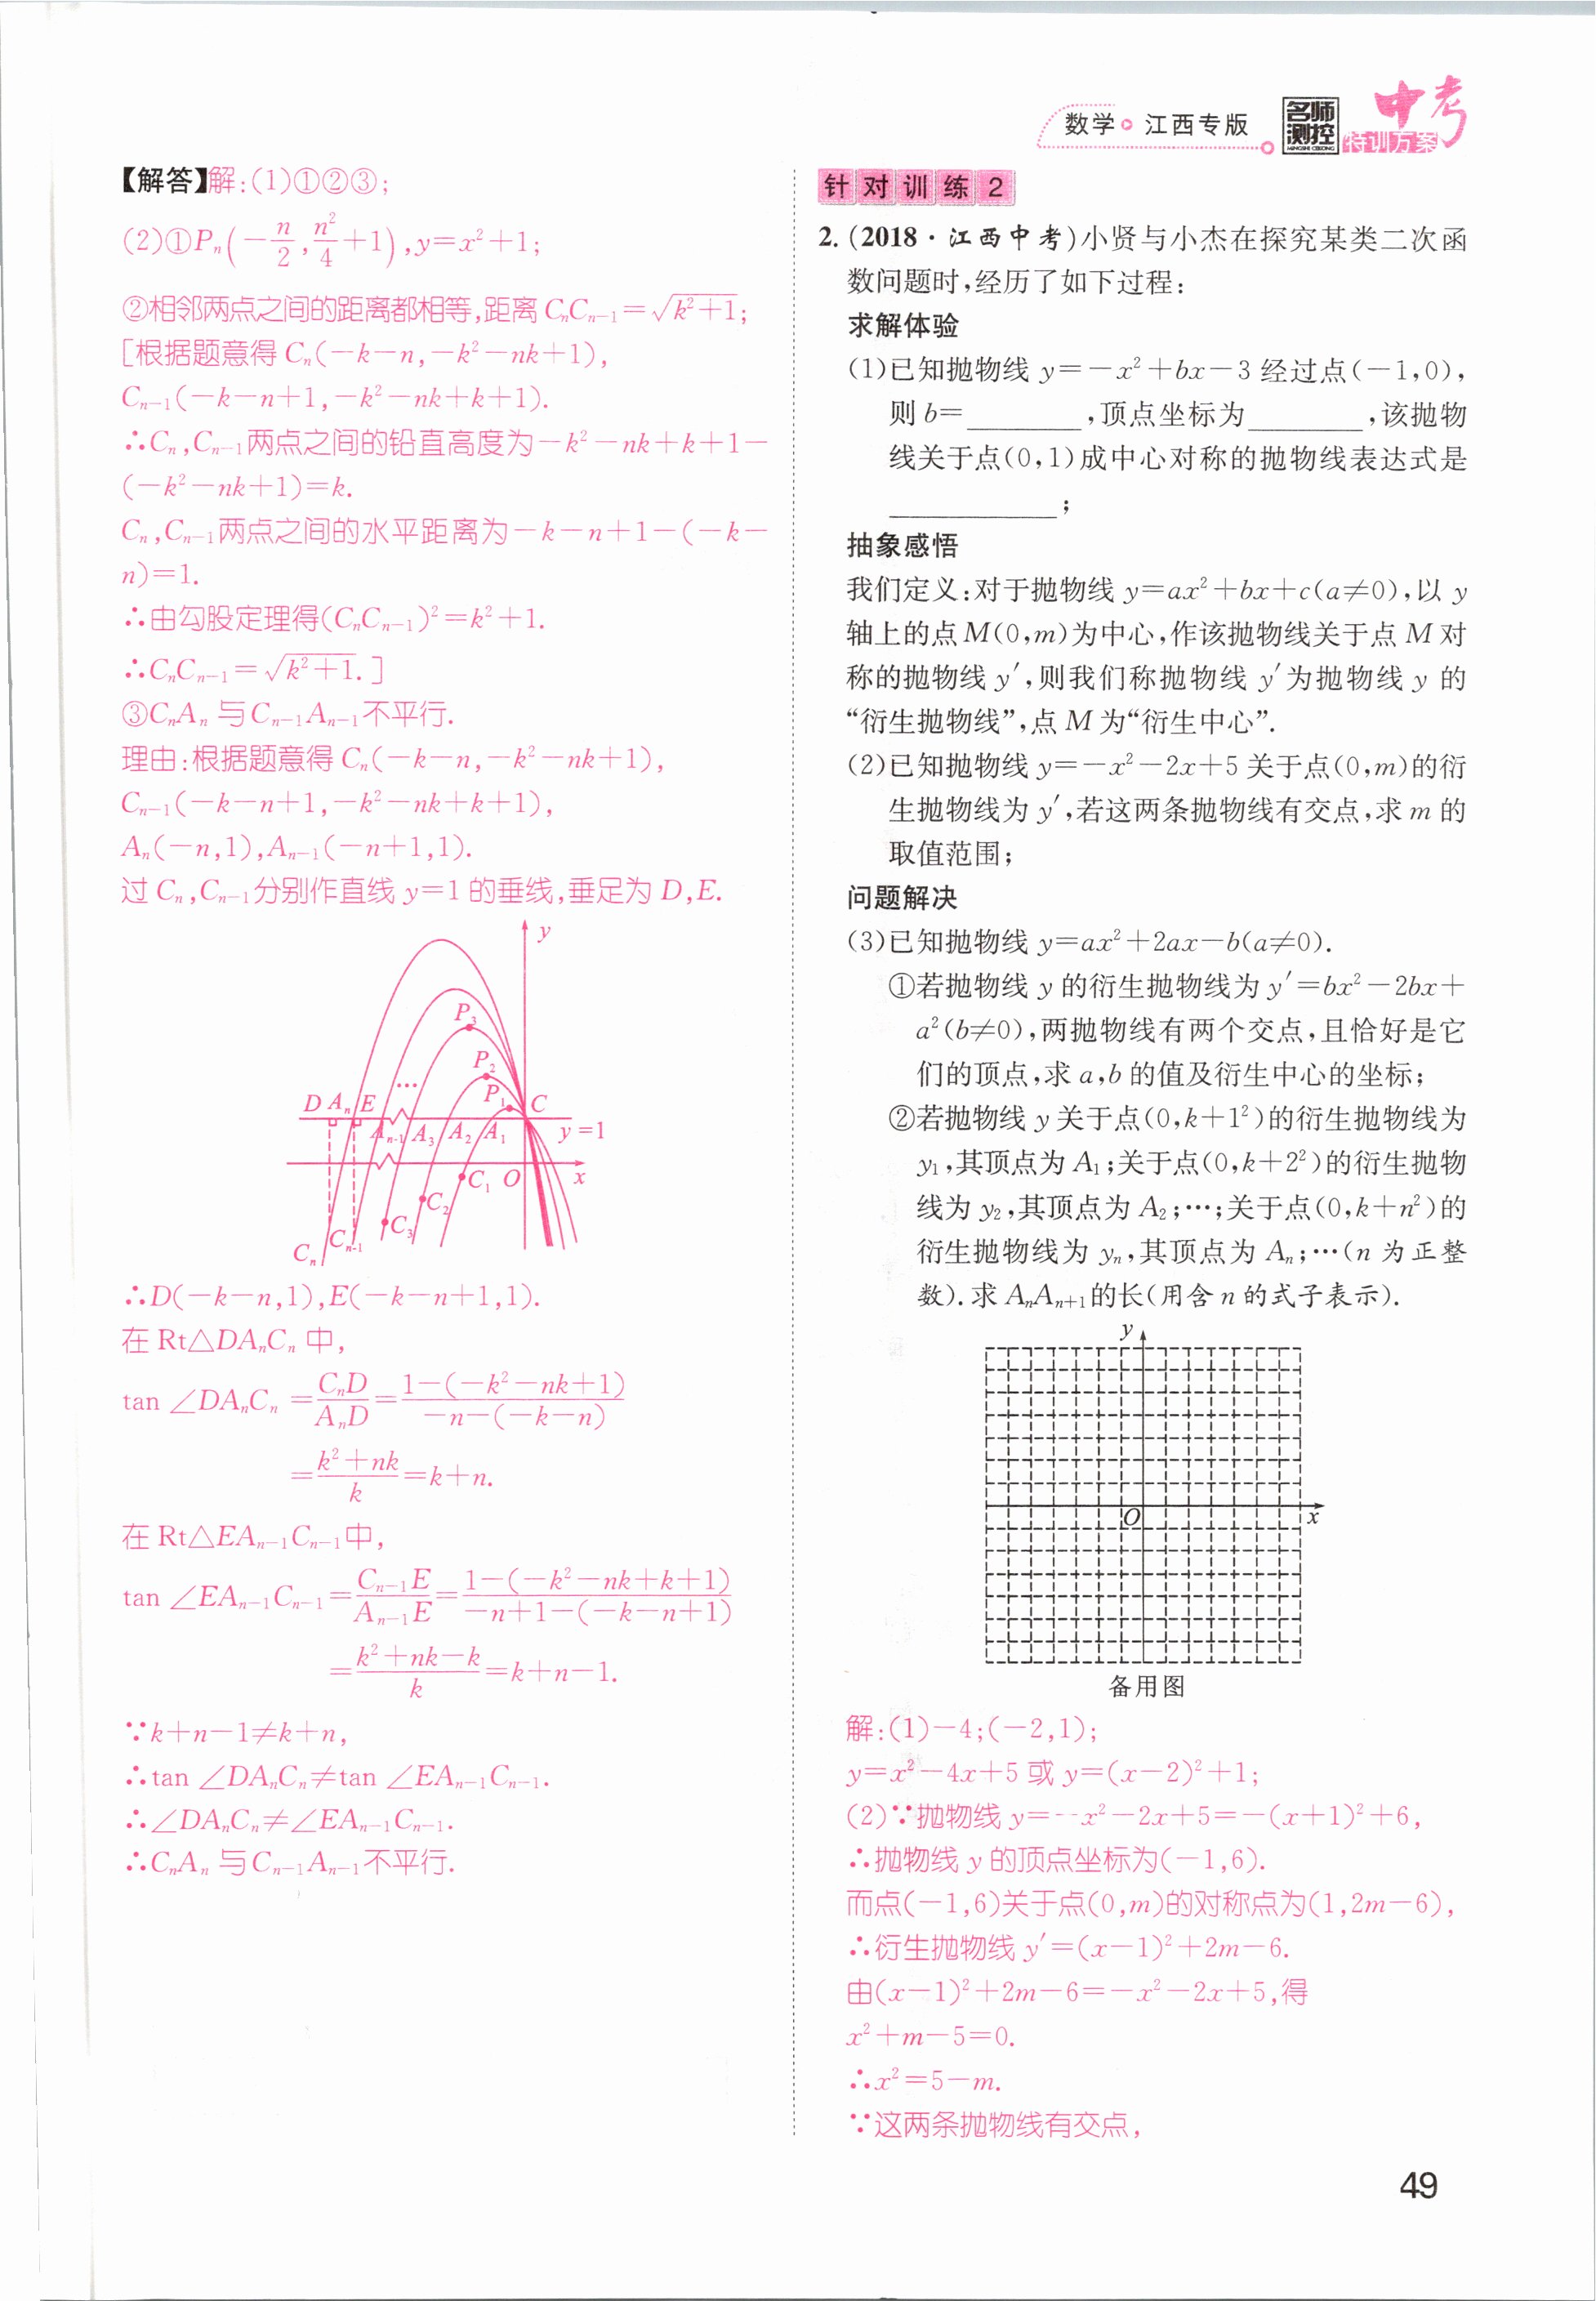 数学 江西专版 名师测控 MINGSHI CEKONG 中考 特训方案
【解答】解:(1)①②③;
(2)①Pₙ(−n/2,n²/4+1),y=x²+1;
②相邻两点之间的距离都相等,距离 CₙCₙ₋₁=√(k²+1);
[根据题意得 Cₙ(−k−n,−k²−nk+1),
Cₙ₋₁(−k−n+1,−k²−nk+k+1).
∴Cₙ,Cₙ₋₁两点之间的铅直高度为−k²−nk+k+1−
(−k²−nk+1)=k.
Cₙ,Cₙ₋₁两点之间的水平距离为−k−n+1−(−k−
n)=1.
∴由勾股定理得(CₙCₙ₋₁)²=k²+1.
∴CₙCₙ₋₁=√(k²+1).]
③CₙAₙ 与Cₙ₋₁Aₙ₋₁不平行.
理由:根据题意得 Cₙ(−k−n,−k²−nk+1),
Cₙ₋₁(−k−n+1,−k²−nk+k+1),
Aₙ(−n,1),Aₙ₋₁(−n+1,1).
过 Cₙ,Cₙ₋₁分别作直线 y=1 的垂线,垂足为 D,E.
y
P₃
P₂
…
P₁
D Aₙ E C
Aₙ₋₁ A₃ A₂ A₁ y=1
C₁ O x
C₂
C₃
Cₙ₋₁
Cₙ
∴D(−k−n,1),E(−k−n+1,1).
在 Rt△DAₙCₙ 中,
tan ∠DAₙCₙ =CₙD/AₙD=[1−(−k²−nk+1)]/[−n−(−k−n)]
=(k²+nk)/k=k+n.
在 Rt△EAₙ₋₁Cₙ₋₁中,
tan ∠EAₙ₋₁Cₙ₋₁=Cₙ₋₁E/Aₙ₋₁E=[1−(−k²−nk+k+1)]/[−n+1−(−k−n+1)]
=(k²+nk−k)/k=k+n−1.
∵k+n−1≠k+n,
∴tan ∠DAₙCₙ≠tan ∠EAₙ₋₁Cₙ₋₁.
∴∠DAₙCₙ≠∠EAₙ₋₁Cₙ₋₁.
∴CₙAₙ 与Cₙ₋₁Aₙ₋₁不平行.
针对训练2
2.(2018·江西中考)小贤与小杰在探究某类二次函
数问题时,经历了如下过程:
求解体验
(1)已知抛物线 y=−x²+bx−3 经过点(−1,0),
则 b=________,顶点坐标为________,该抛物
线关于点(0,1)成中心对称的抛物线表达式是
____________;
抽象感悟
我们定义:对于抛物线 y=ax²+bx+c(a≠0),以 y
轴上的点 M(0,m)为中心,作该抛物线关于点 M 对
称的抛物线 y′,则我们称抛物线 y′为抛物线 y 的
“衍生抛物线”,点 M 为“衍生中心”.
(2)已知抛物线 y=−x²−2x+5 关于点(0,m)的衍
生抛物线为 y′,若这两条抛物线有交点,求 m 的
取值范围;
问题解决
(3)已知抛物线 y=ax²+2ax−b(a≠0).
①若抛物线 y 的衍生抛物线为 y′=bx²−2bx+
a²(b≠0),两抛物线有两个交点,且恰好是它
们的顶点,求 a,b 的值及衍生中心的坐标;
②若抛物线 y 关于点(0,k+1²)的衍生抛物线为
y₁,其顶点为 A₁;关于点(0,k+2²)的衍生抛物
线为 y₂,其顶点为 A₂;…;关于点(0,k+n²)的
衍生抛物线为 yₙ,其顶点为 Aₙ;…(n 为正整
数).求 AₙAₙ₊₁的长(用含 n 的式子表示).
y
O x
备用图
解:(1)−4;(−2,1);
y=x²−4x+5 或 y=(x−2)²+1;
(2)∵抛物线 y=−x²−2x+5=−(x+1)²+6,
∴抛物线 y 的顶点坐标为(−1,6).
而点(−1,6)关于点(0,m)的对称点为(1,2m−6),
∴衍生抛物线 y′=(x−1)²+2m−6.
由(x−1)²+2m−6=−x²−2x+5,得
x²+m−5=0.
∴x²=5−m.
∵这两条抛物线有交点,
49